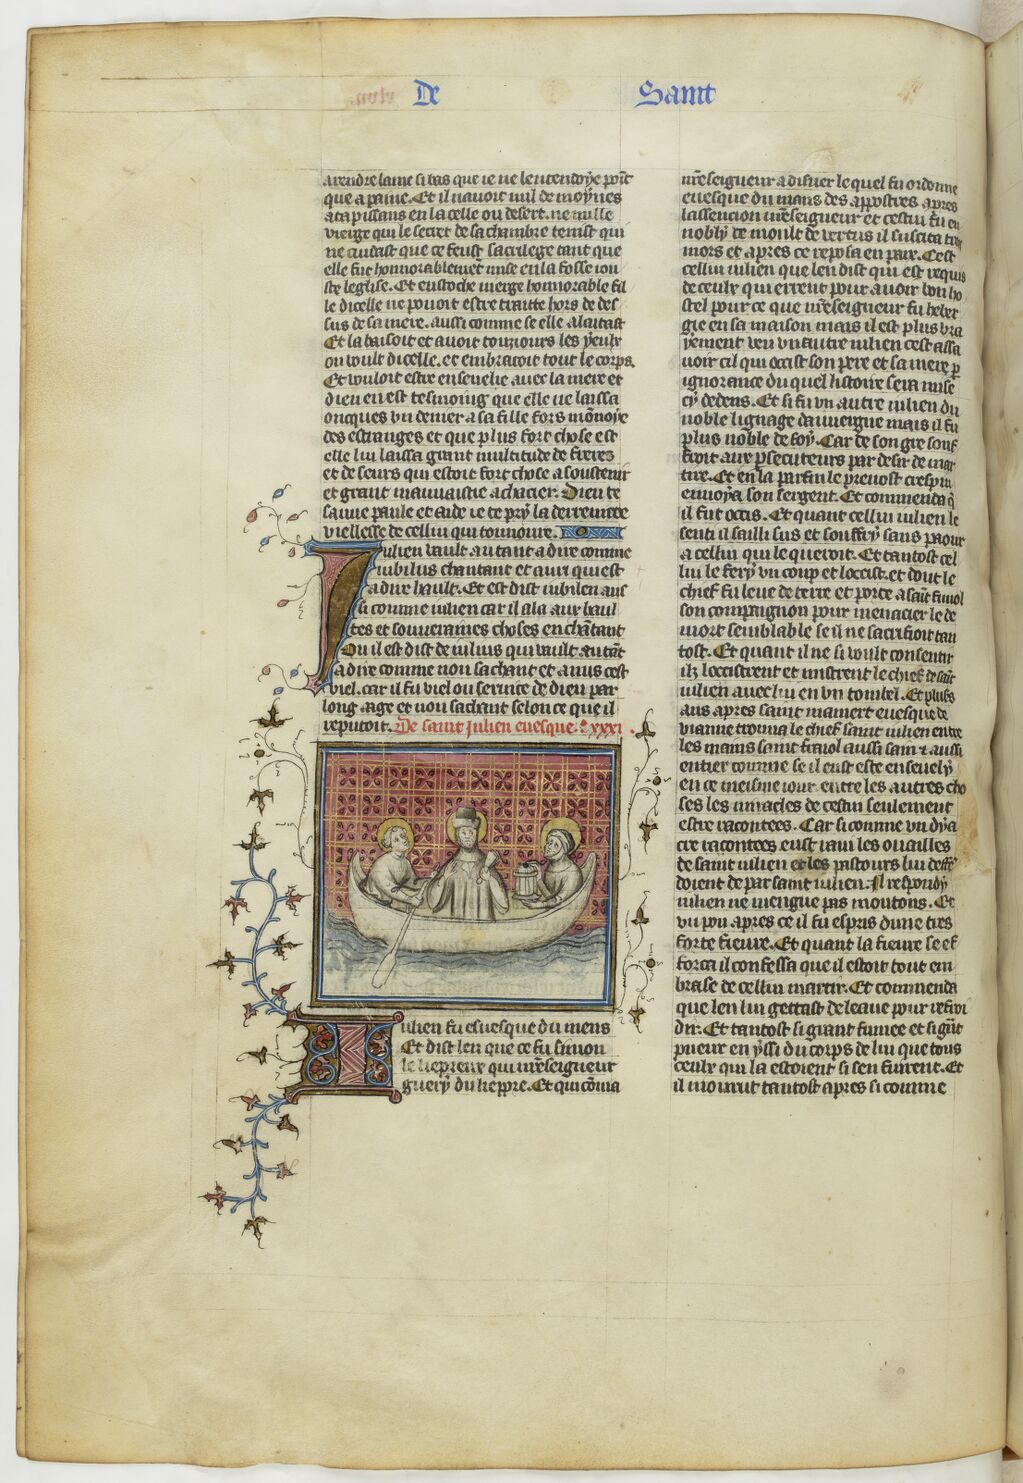 De Saint
arendre lame si bas que ie ne lentendoye point
que a paine. Et il nauoit nul de moynes
atapissans en la celle ou desert. ne nulle
vierge qui le secret de sa chambre tenist qui
ne cuidast que ce feust sacrilege tant que
elle fut honnorablement mise en la fosse iou
ste leglise. Et eustoche vierge honnorable fil
le dicelle ne pouoit estre traitte hors de des
sus de sa mere. aussi comme se elle alaitast
Et la baisoit et auoit touziours les yeulx
ou voult dicelle. et embracoit tout le corps.
Et vouloit estre enseuelie auec la mere et
dieu en est tesmoing que elle ne laissa
oncques vn denier a sa fille fors monnoye
des estranges et que plus fort chose est
elle lui laissa grant multitude de freres
et de seurs qui estoit fort chose a soustenir
et grant mauuaistie achacier. Dieu te
sauue paule et aide ie te pry la derreinere
viellesse de cellui qui tonnoure.
Iulien vault autant a dire comme
iubilus chantant et aui qui est
a dire hault. Et est dist iubilen aus
si comme iulien car il ala aux haul
tes et souueraines choses en chantant
Ou il est dist de iulius qui vault autant
a dire comme non sachant et anus cest
viel. car il fu viel ou seruice de dieu par
long aage et non sachant selon ce que il
reputoit. De saint Julien euesque. xxxi.
Iulien fu euesque du mens
Et dist len que ce fu simon
le liepreux qui nreseigneur
guery du lieppre. Et qui conuia
nreseigneur a disner le quel fu ordonne
euesque du mans des appostres apres
lassencion nreseigneur et cestui fu en
nobly de moult de vertus il suscita
mors et apres ce reposa en paix. Cest
cellui iulien que len dist qui est requis
de ceulx qui errent pour auoir bon ho
stel pour ce que nreseigneur fu heber
gie en sa maison mais il est plus vra
yement veu vn autre iulien cest assa
uoir cil qui occist son pere et sa mere p
ignorance du quel listoire sera mise
cy dedens. Et si fu vn autre iulien du
noble lignage dauuergne mais il fu
plus noble de foy. Car de son gre souf
froit aux psecuteurs par desir de mar
tire. Et en la parfin le preuost crespin
enuoya son sergent. Et commenda q
il fut occis. Et quant cellui iulien le
senti il sailli sus et souffry sans paour
a cellui qui le queroit. Et tantost cel
lui le fery vn coup et loccist. et dont le
chief fu leue de terre et porte a saint fuiol
son compaignon pour menacier le de
mort semblable se il ne sacrifioit tan
tost. Et quant il ne si voult consentir
ilz loccistrent et mistrent le chief de saint
iulien auec lui en vn tombel. Et pluss
ans apres saint mamert euesque de
vianne trouua le chief saint iulien entre
les mains saint fraiol aussi sain z aussi
entier comme se il eust este enseuely
en ce meisme iour. entre les autres cho
ses les miracles de cestui seulement
estre racontees. Car si comme vn dya
cre racontees eust raui les ouailles
de saint iulien et les pastours lui deff
doient de par saint iulien. Il respondy
iulien ne mengue pas moutons. Et
vn pou apres ce il fu espris dune tres
forte fieure. Et quant la fieure se ef
forca il confessa que il estoit tout em
brase de cellui martir. Et commenda
que len lui gettast de leaue pour refroi
dir. Et tantost si grant fumee et si grant
pueur en yssi du corps de lui que tous
ceulx qui la estoient si sen fuirent. Et
il mourut tantost apres si comme